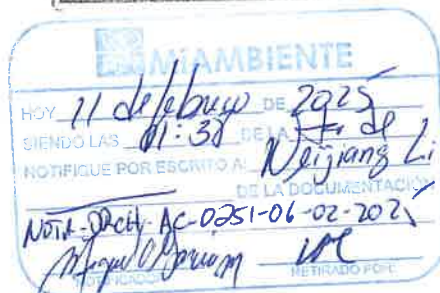 MiAMBIENTE
HOY 11 de febrero DE 2025
SIENDO LAS 01:38 DE LA
NOTIFIQUE POR ESCRITO A: Neijiang Li
DE LA DOCUMENTACIÓN
NOTA-DRCH-AC-0251-06-02-202
NOTIFICADOR RETIRADO POR: